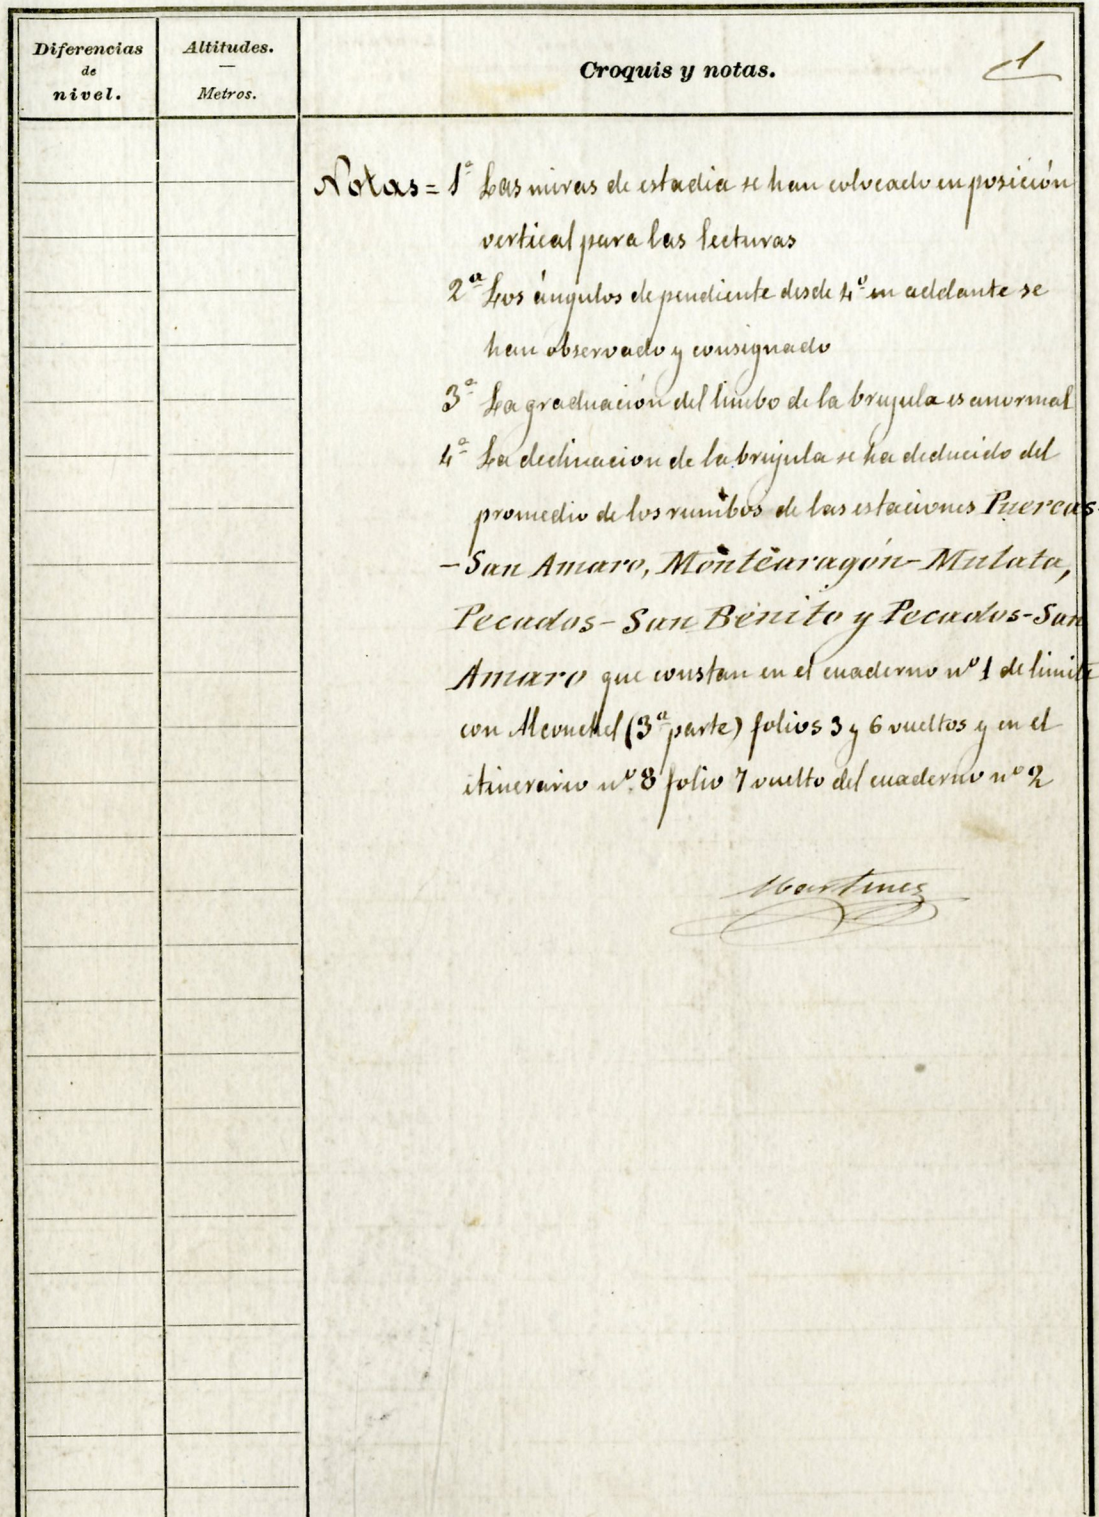 Diferencias
de
nivel.
Altitudes.
Metros.
Croquis y notas.
1
Notas = 1ª Las miras de estadia se han colocado en posición
vertical para las lecturas
2ª Los ángulos de pendiente desde 4º en adelante se
han observado y consignado
3ª La graduación del limbo de la brujula es anormal
4ª La declinacion de la brujula se ha deducido del
promedio de los rumbos de las estaciones Puercas-
-San Amaro, Montearagón-Mulata,
Pecados-San Benito y Pecados-San
Amaro que constan en el cuaderno nº 1 de limite
con Alconchel (3ª parte) folios 3 y 6 vueltos y en el
itinerario nº 8 folio 7 vuelto del cuaderno nº 2
Martinez